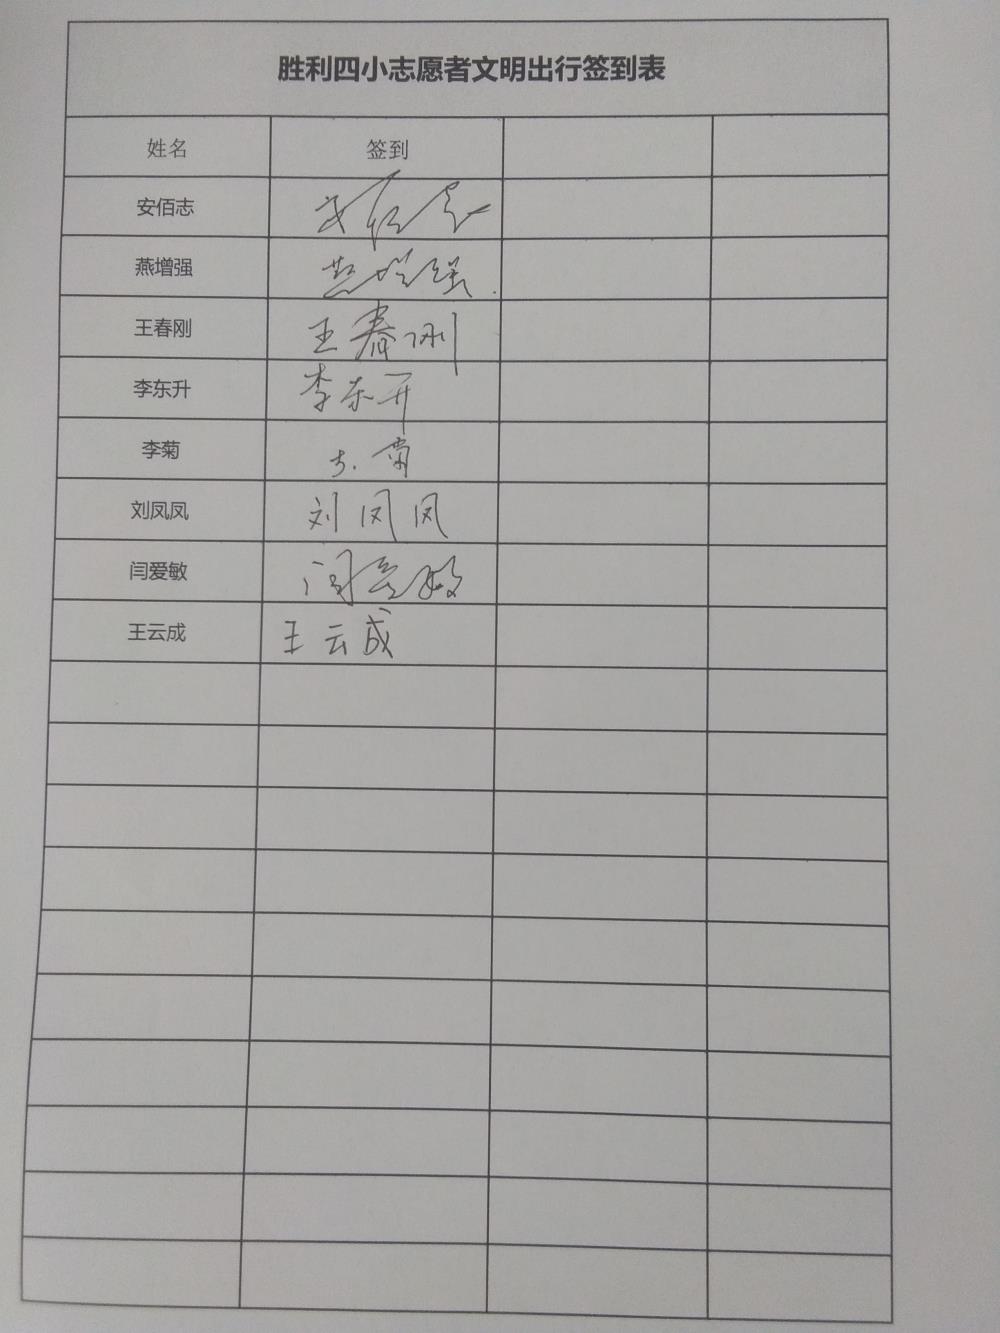 胜利四小志愿者文明出行签到表
姓名 签到
安佰志 安佰志
燕增强 燕增强
王春刚 王春刚
李东升 李东升
李菊 李菊
刘凤凤 刘凤凤
闫爱敏 闫爱敏
王云成 王云成